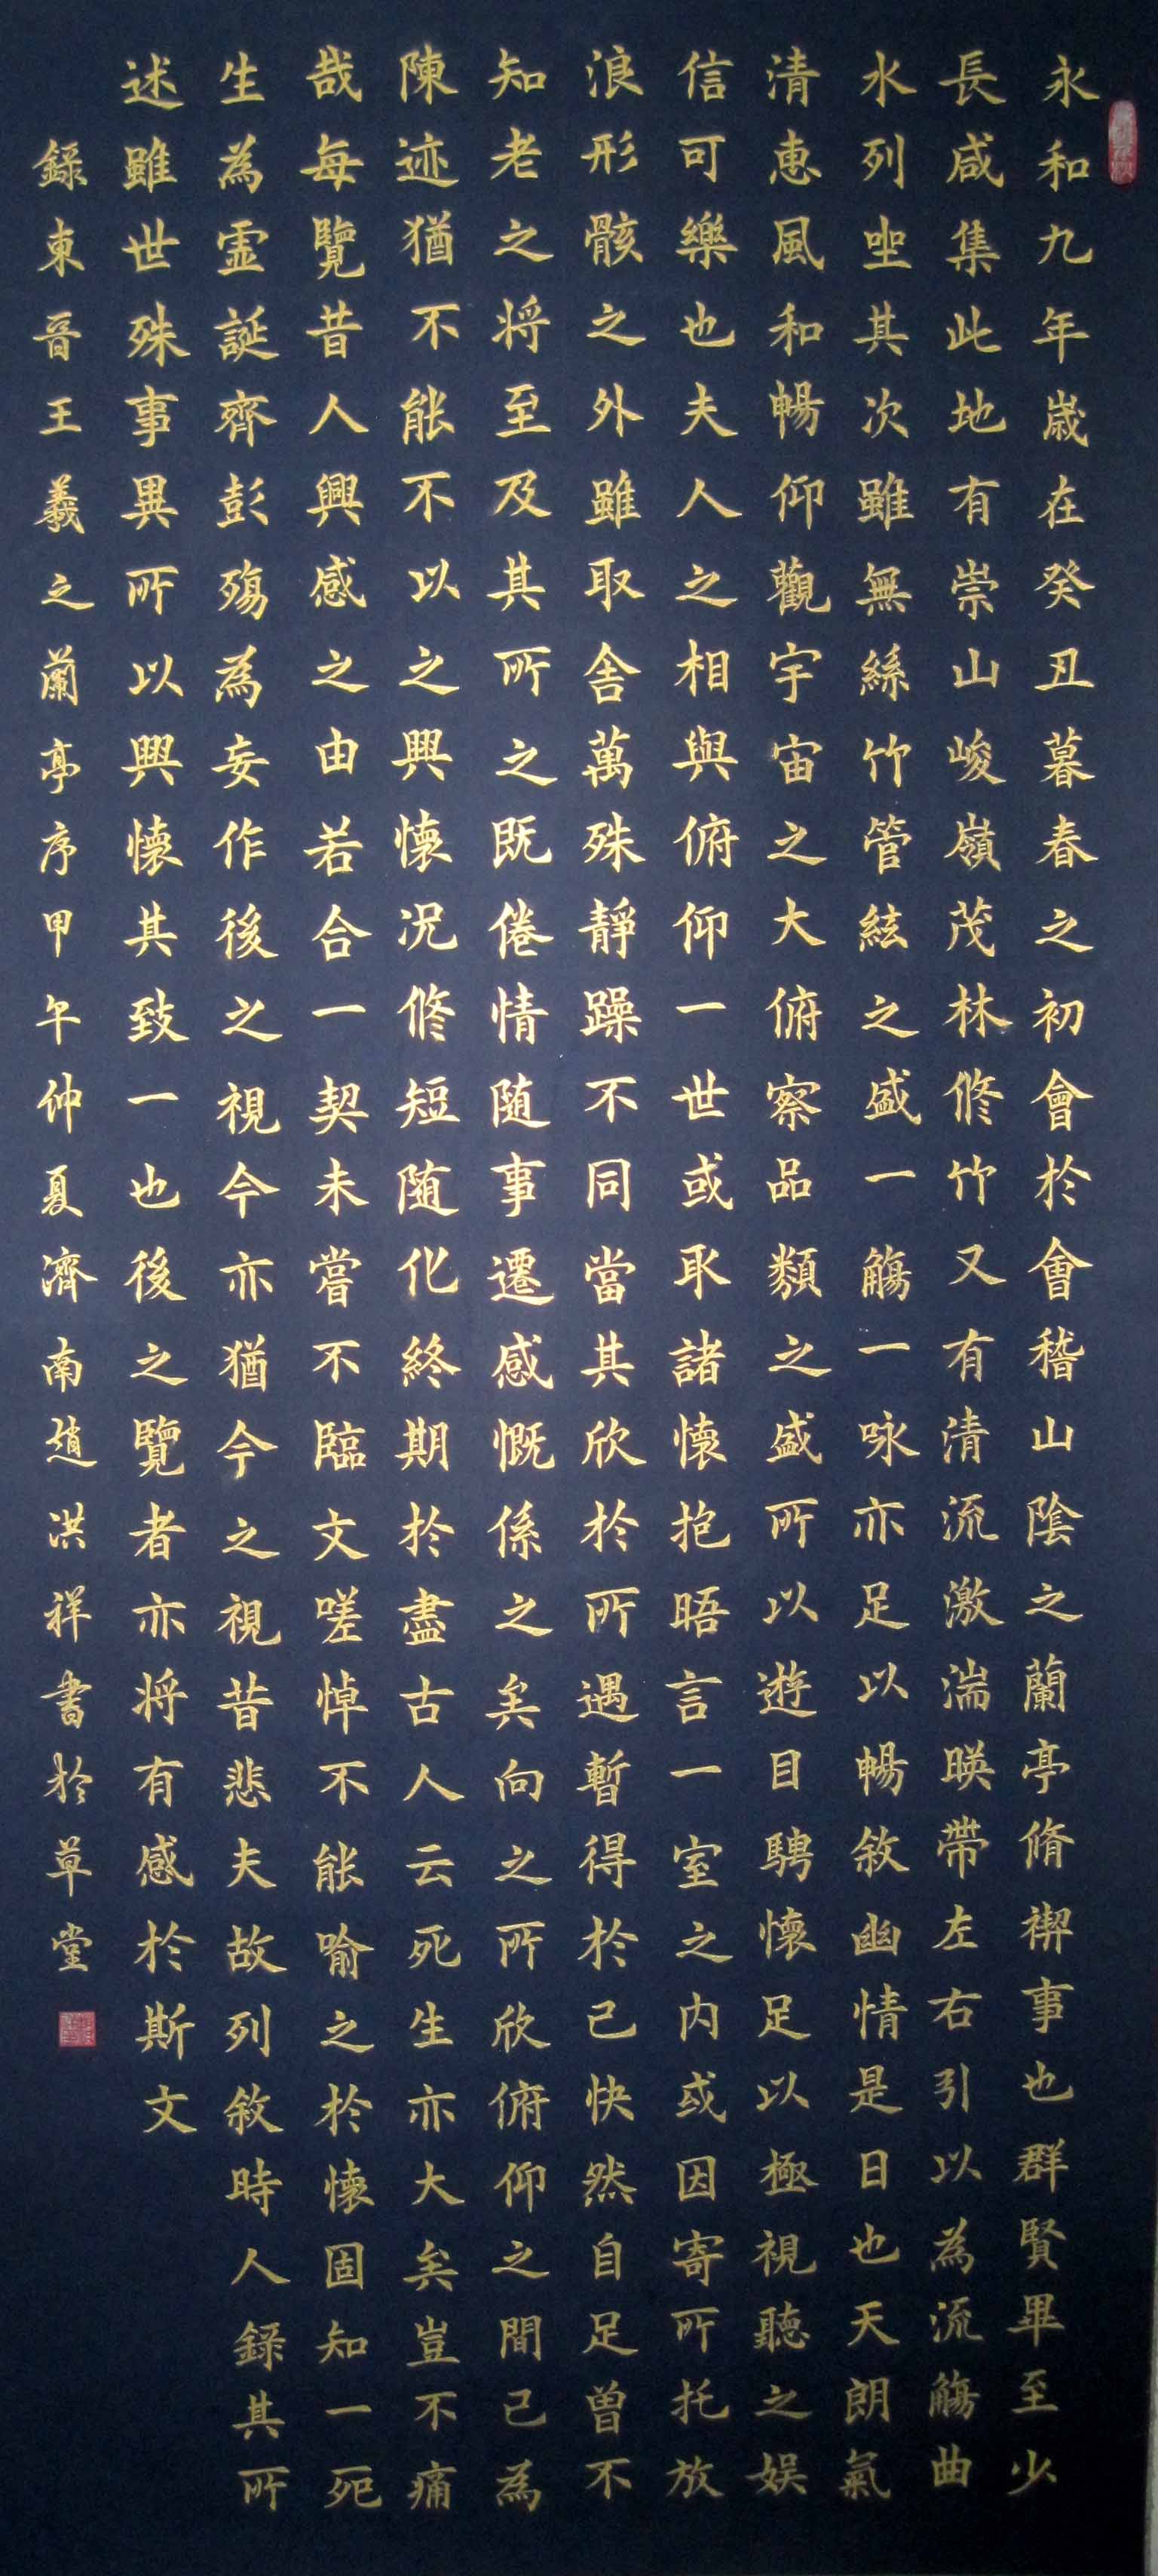 永和九年歲在癸丑暮春之初會於會稽山陰之蘭亭脩禊事也群賢畢至少
長咸集此地有崇山峻嶺茂林修竹又有清流激湍暎帶左右引以為流觴曲
水列坐其次雖無絲竹管絃之盛一觴一咏亦足以暢敘幽情是日也天朗氣
清惠風和暢仰觀宇宙之大俯察品類之盛所以遊目騁懷足以極視聽之娛
信可樂也夫人之相與俯仰一世或取諸懷抱晤言一室之內或因寄所托放
浪形骸之外雖取舍萬殊靜躁不同當其欣於所遇暫得於己快然自足曾不
知老之將至及其所之既倦情隨事遷感慨係之矣向之所欣俯仰之間已為
陳迹猶不能不以之興懷況修短隨化終期於盡古人云死生亦大矣豈不痛
哉每覽昔人興感之由若合一契未嘗不臨文嗟悼不能喻之於懷固知一死
生為虛誕齊彭殤為妄作後之視今亦猶今之視昔悲夫故列敘時人錄其所
述雖世殊事異所以興懷其致一也後之覽者亦將有感於斯文
錄東晉王羲之蘭亭序甲午仲夏濟南趙洪祥書於草堂